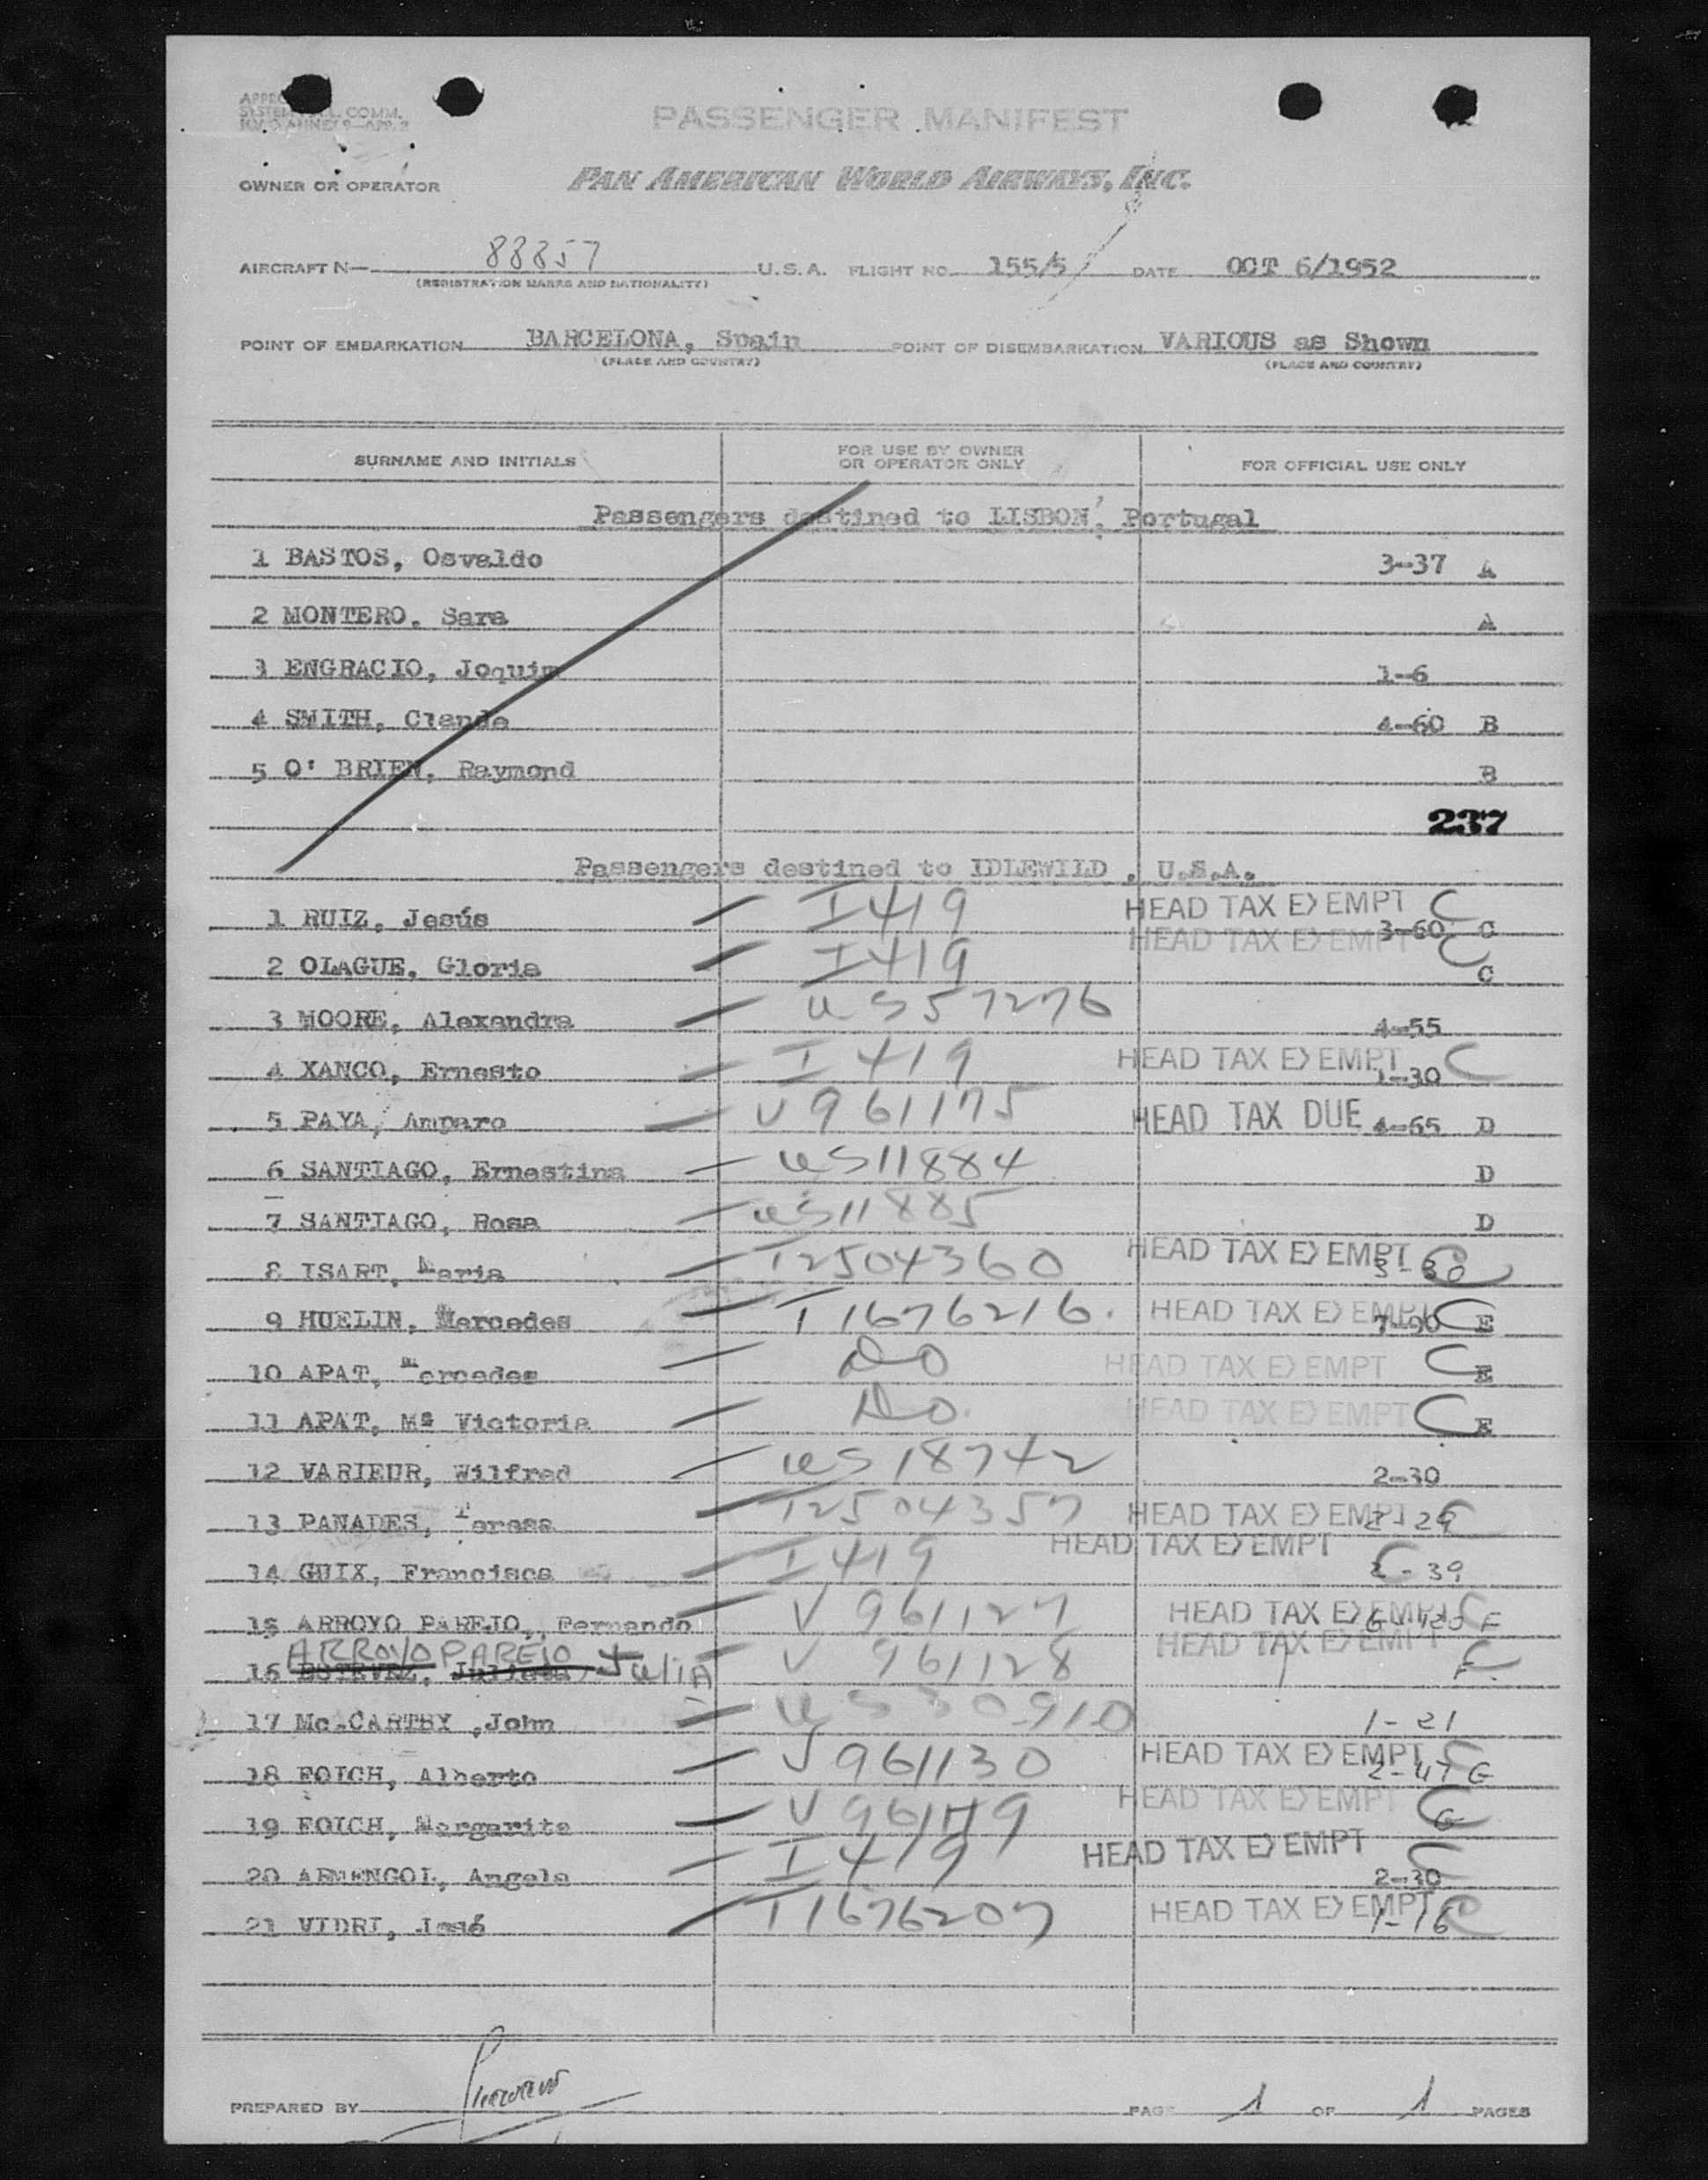 PASSENGER MANIFEST
OWNER OR OPERATOR PAN AMERICAN WORLD AIRWAYS, INC.
AIRCRAFT N— 88857 U.S.A. FLIGHT NO. 155/5 DATE OCT 6/1952
(REGISTRATION MARKS AND NATIONALITY)
POINT OF EMBARKATION BARCELONA, Spain POINT OF DISEMBARKATION VARIOUS as Shown
(PLACE AND COUNTRY) (PLACE AND COUNTRY)
SURNAME AND INITIALS FOR USE BY OWNER OR OPERATOR ONLY FOR OFFICIAL USE ONLY
Passengers destined to LISBON, Portugal
1 BASTOS, Osvaldo 3-37 A
2 MONTERO, Sara A
3 ENGRACIO, Joquim 1-6
4 SMITH, Claude 4-60 B
5 O' BRIEN, Raymond B
237
Passengers destined to IDLEWILD, U.S.A.
1 RUIZ, Jesús — I 419 HEAD TAX EXEMPT C 3-60 C
2 OLAGUE, Gloria — I 419 HEAD TAX EXEMPT C C
3 MOORE, Alexandra — US 57276 4-55
4 XANCO, Ernesto — I 419 HEAD TAX EXEMPT C 1-30
5 PAYA, Amparo — V 961175 HEAD TAX DUE 4-65 D
6 SANTIAGO, Ernestina — US 11884 D
7 SANTIAGO, Rosa — US 11885 D
8 ISART, Maria — T2504360 HEAD TAX EXEMPT C 3-30
9 HUELIN, Mercedes — T1676216. HEAD TAX EXEMPT C 7-90 E
10 APAT, Mercedes — DO HEAD TAX EXEMPT C E
11 APAT, Mª Victoria — Do. HEAD TAX EXEMPT C E
12 VARIEUR, Wilfred — US 18742 2-30
13 PANADES, Teresa — T2504357 HEAD TAX EXEMPT C 2-29
14 GUIX, Francisca — I 419 HEAD TAX EXEMPT C 2-39
15 ARROYO PAREJO, Fernando — V 961127 HEAD TAX EXEMPT C F
ARROYO PAREJO Julia
16 ESTEVEZ, — V 961128 HEAD TAX EXEMPT C F.
17 Mc.CARTHY ,John — US 30910 1-21
18 FOICH, Alberto — V961130 HEAD TAX EXEMPT C 2-47 G
19 FOICH, Margarita — V 961149 HEAD TAX EXEMPT C G
20 ARMENGOL, Angela — I 419 HEAD TAX EXEMPT C 2-30
21 VIDRI, José — T1676207 HEAD TAX EXEMPT C 1-16
PREPARED BY PAGE 1 OF 1 PAGES